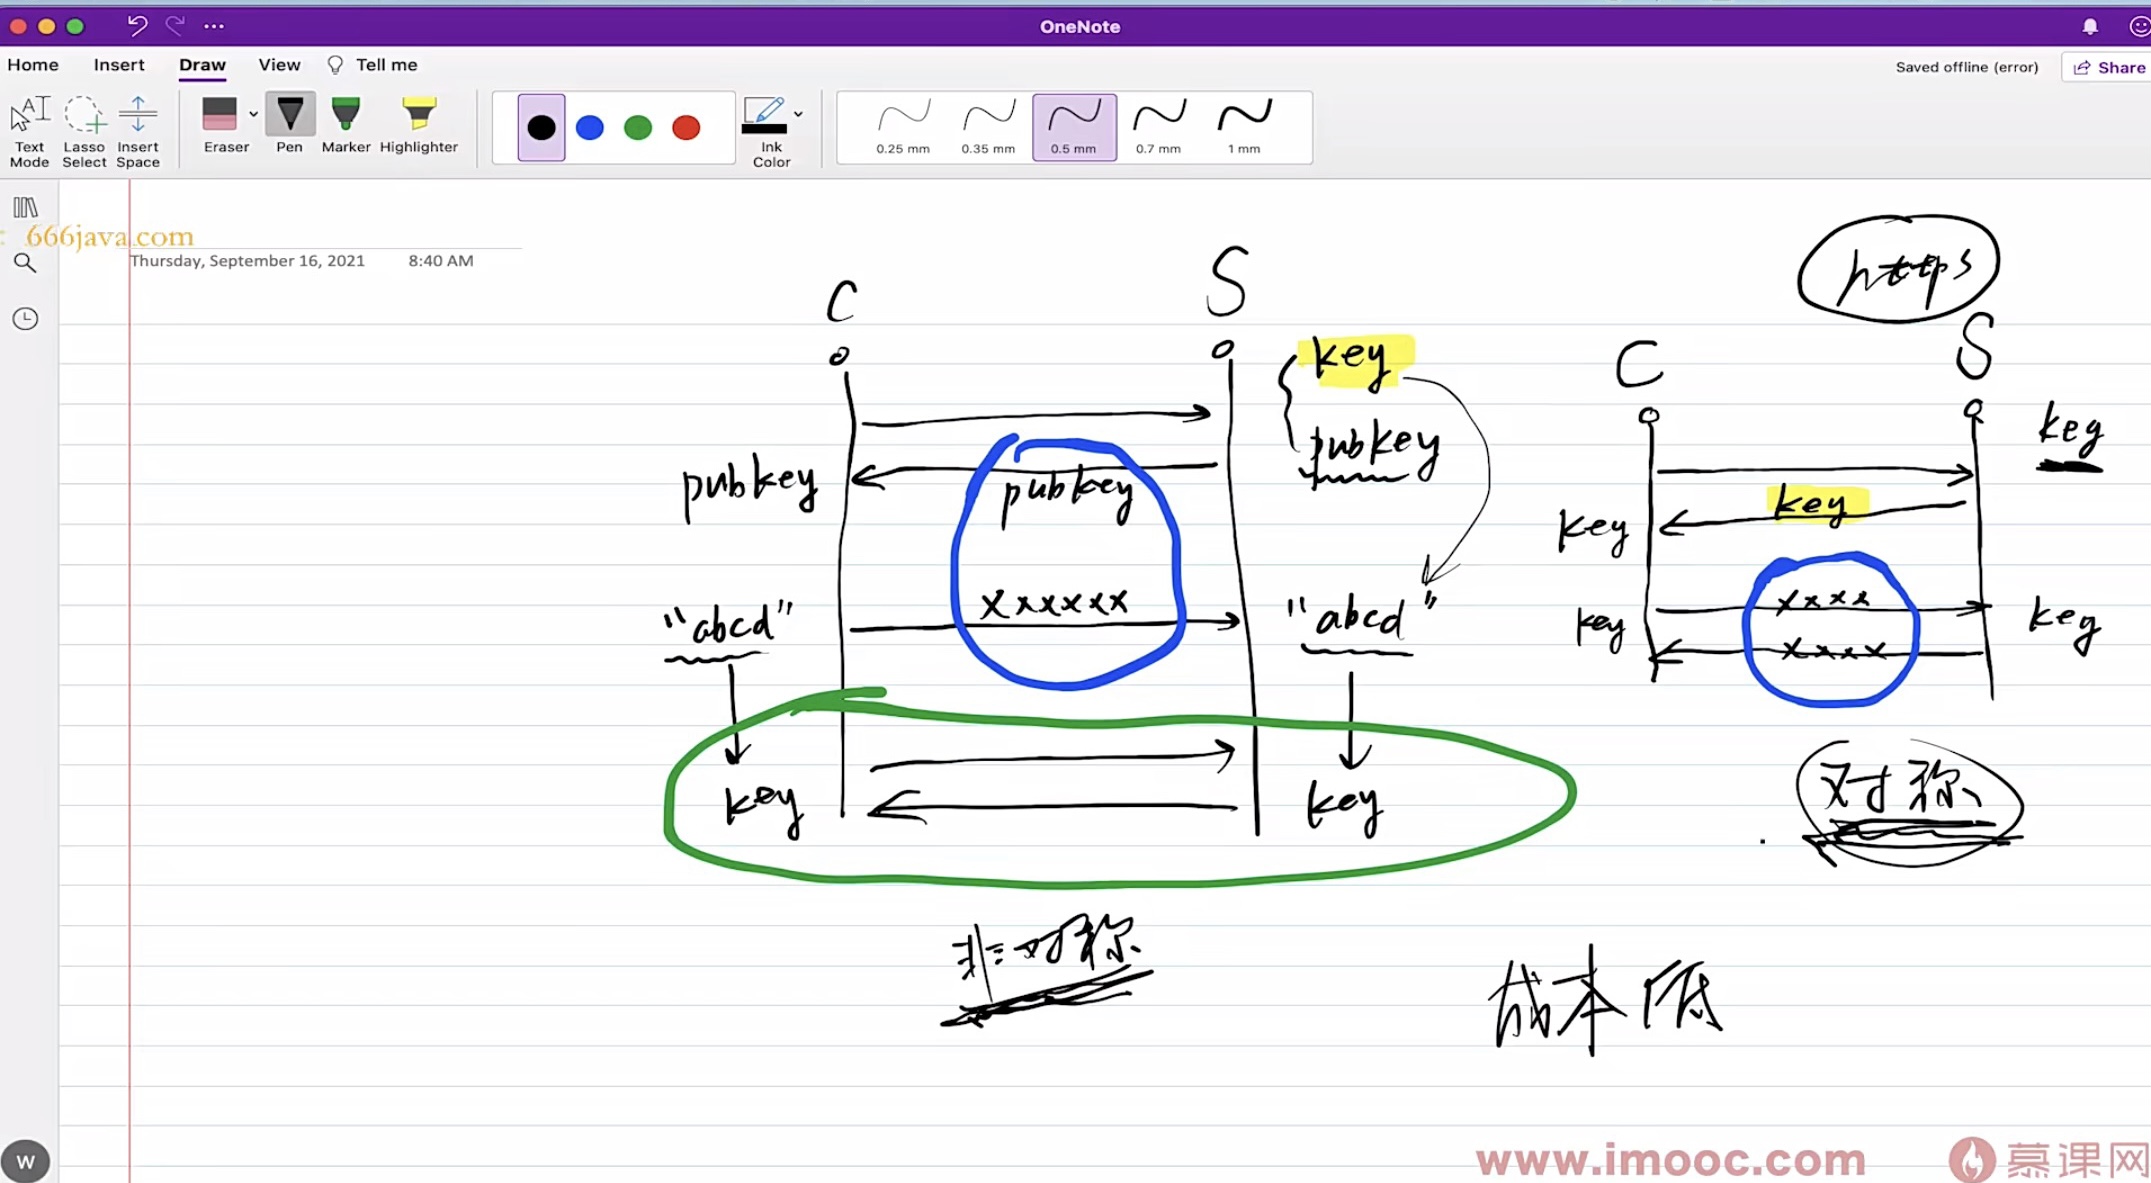 OneNote
Home Insert Draw View Tell me
Saved offline (error) Share
Text Mode
Lasso Select
Insert Space
Eraser
Pen
Marker
Highlighter
Ink Color
0.25 mm
0.35 mm
0.5 mm
0.7 mm
1 mm
666java.com
Thursday, September 16, 2021 8:40 AM
https
C S
key
pubkey
pubkey
pubkey
xxxxxx
"abcd"
"abcd"
key
key
非对称
C S
key
key
key
xxxx
key
key
xxxx
对称
成本低
W
www.imooc.com 慕课网